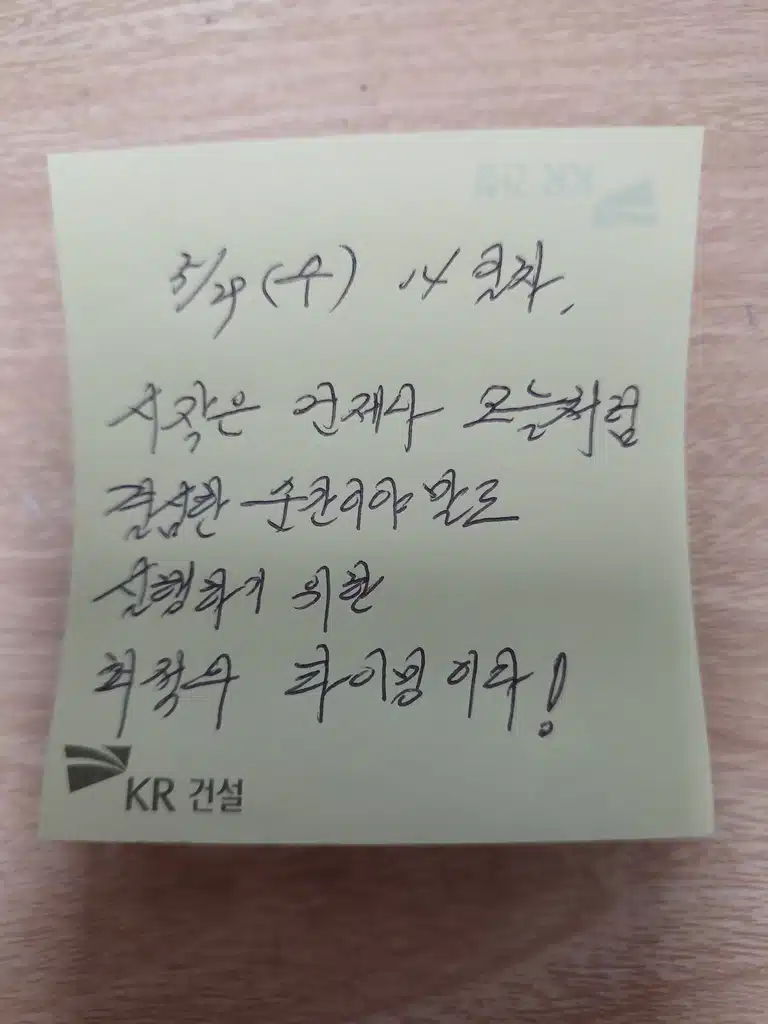 KR 건설
5/29 (수) 14일차.
시작은 언제나 오늘처럼
결심한 순간이야말로
실행하기 위한
최적의 타이밍이다!
KR 건설